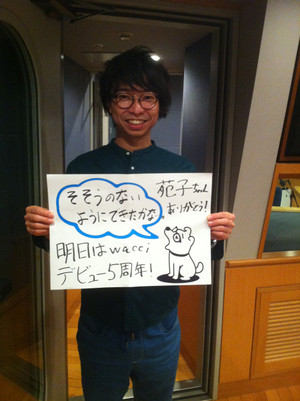 そそうのない
ようにできたかな
苑子ちゃん
ありがとう!
明日はwacci
デビュー5周年!